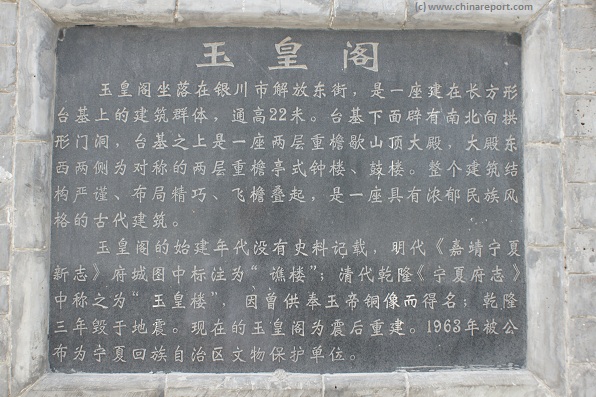 (c) www.chinareport.com
玉皇阁
玉皇阁坐落在银川市解放东街，是一座建在长方形
台基上的建筑群体，通高22米。台基下面辟有南北向拱
形门洞，台基之上是一座两层重檐歇山顶大殿，大殿东
西两侧为对称的两层重檐亭式钟楼、鼓楼。整个建筑结
构严谨、布局精巧、飞檐叠起，是一座具有浓郁民族风
格的古代建筑。
玉皇阁的始建年代没有史料记载，明代《嘉靖宁夏
新志》府城图中标注为“谯楼”；清代乾隆《宁夏府志》
中称之为“玉皇楼”，因曾供奉玉帝铜像而得名；乾隆
三年毁于地震。现在的玉皇阁为震后重建。1963年被公
布为宁夏回族自治区文物保护单位。